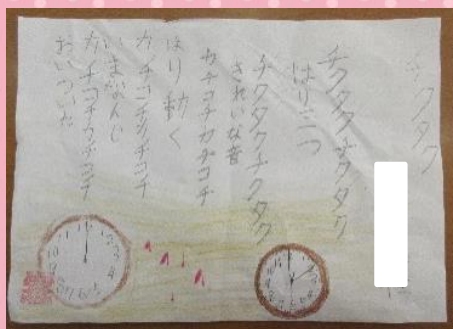 チクタク
チクタクチクタク
はり三つ
チクタクチクタク
きれいな音
カチコチカチコチ
はり動く
カチコチカチコチ
いまなんじ
カチコチカチコチ
おいついた